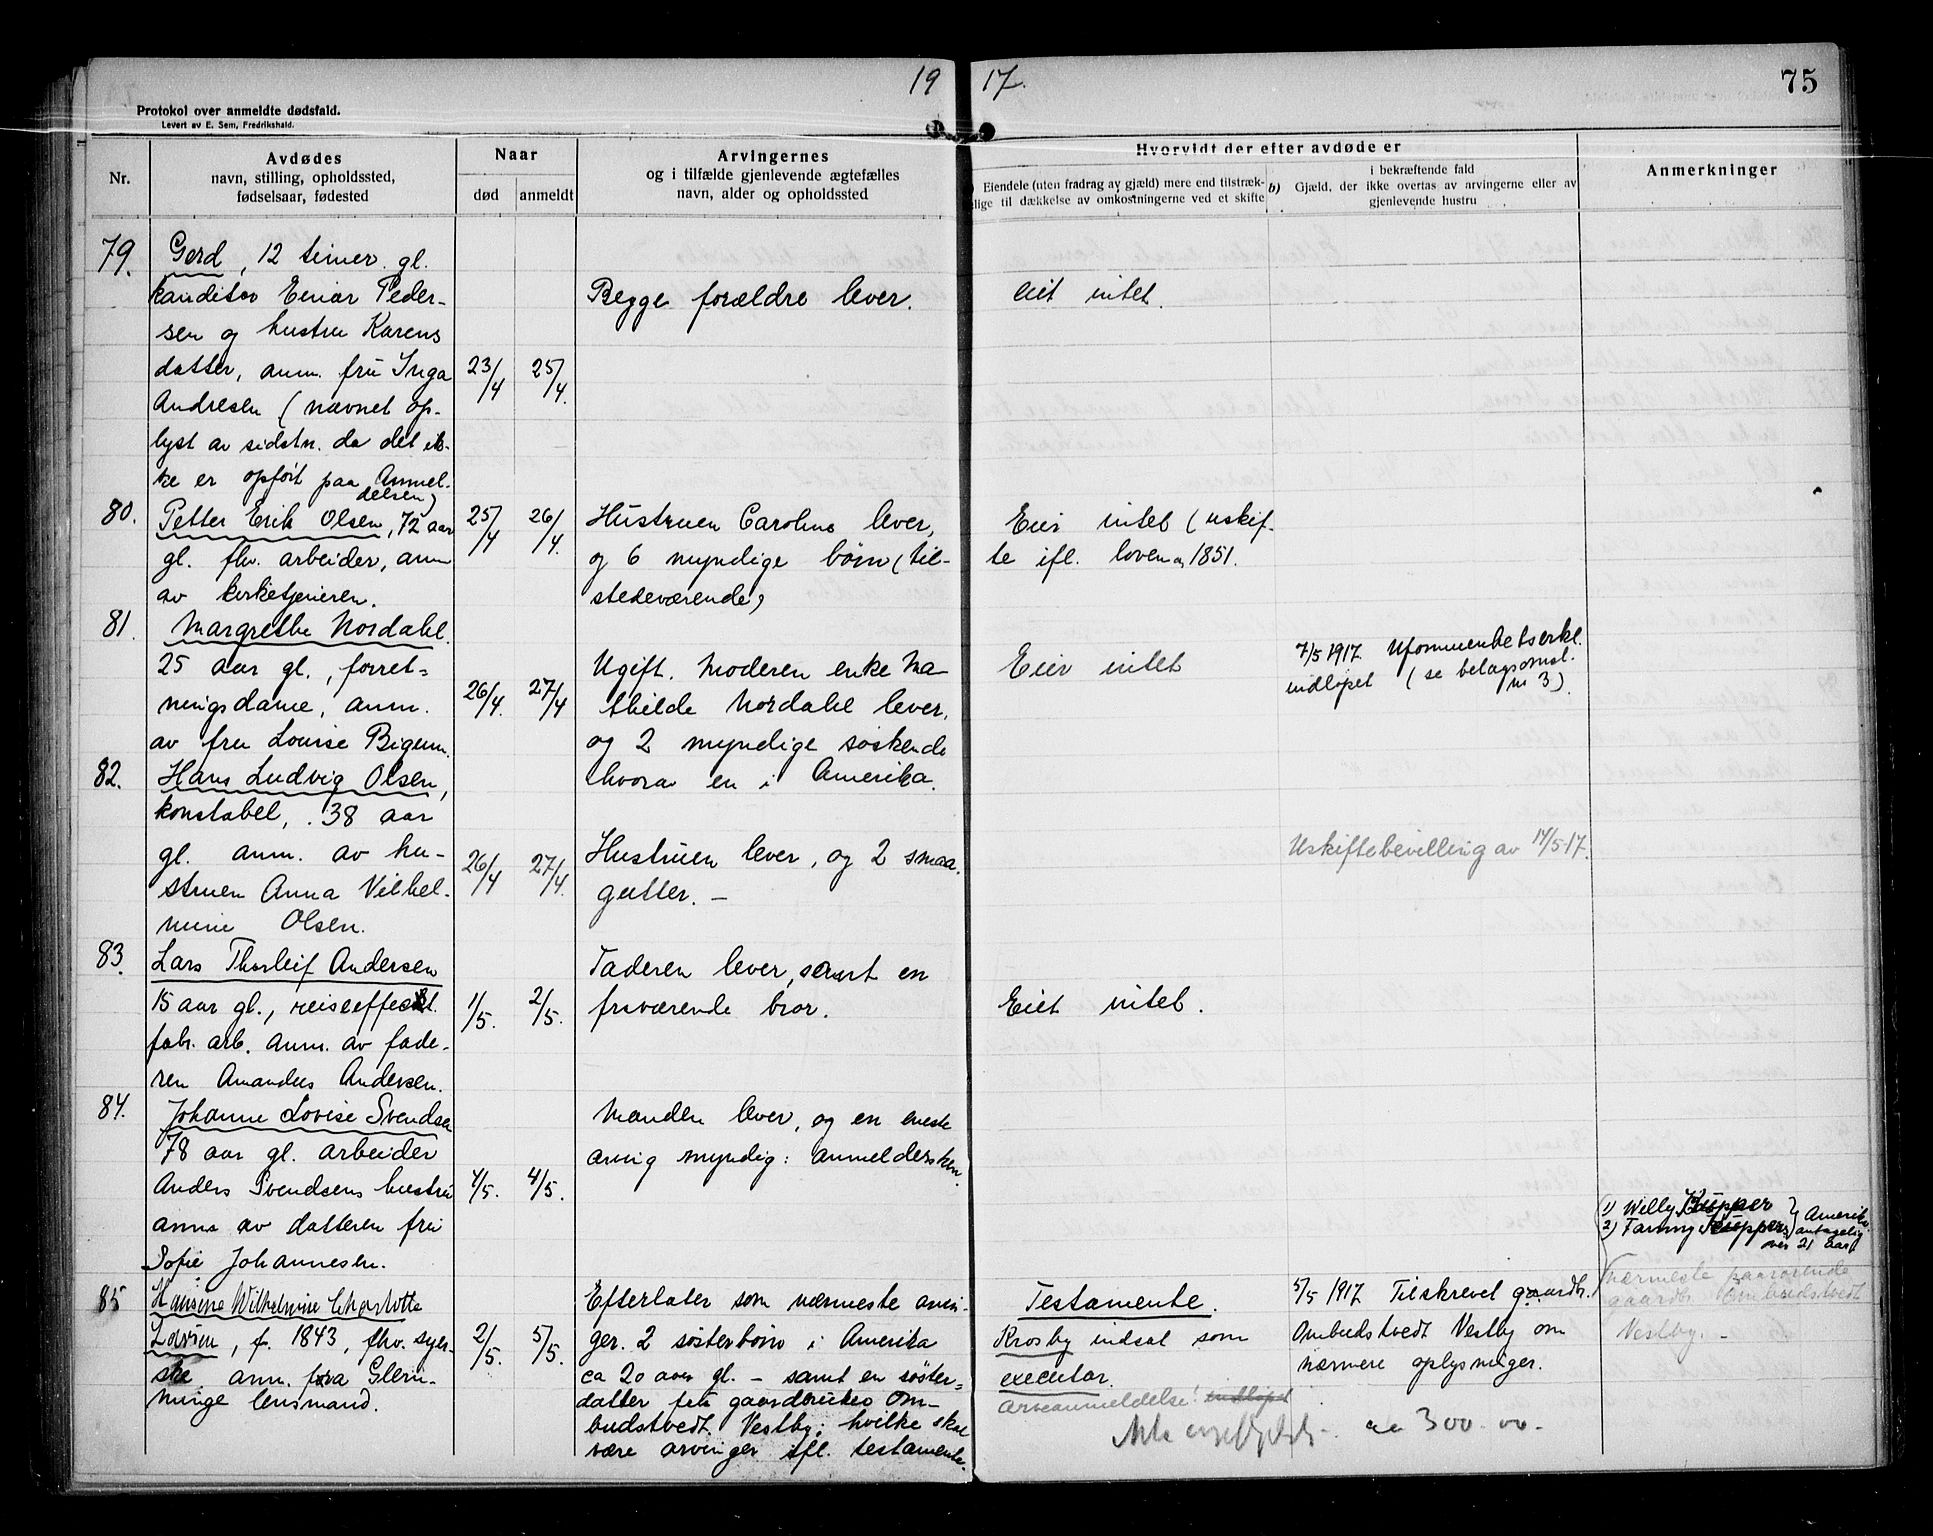 19 17.
75
Protokol over anmeldte dødsfald.
Levert av E. Sem, Fredrikshald.
Nr.
Avdødes
navn, stilling, opholdssted,
fødselsaar, fødested
Naar
død
anmeldt
Arvingernes
og i tilfælde gjenlevende ægtefælles
navn, alder og opholdssted
Hvorvidt der efter avdøde er
Eiendele (uten fradrag av gjæld) mere end tilstræk-
lige til dækkelse av omkostningerne ved et skifte
b)
i bekræftende fald
Gjæld, der ikke overtas av arvingerne eller av
gjenlevende hustru
Anmerkninger
79.
Gerd, 12 timer gl.
kanditor Einar Peder-
sen og hustru Karens
datter, anm. fru Inga
Andresen (navnet op-
lyst av sidstn. da det ik-
ke er opført paa Anmel-
delsen)
23/4
25/4.
Begge forældre lever.
eiet intet.
80.
Petter Erik Olsen, 72 aar
gl. fhv. arbeider, anm
av kirketjeneren.
25/4
26/4.
Hustruen Caroline lever,
og 6 myndige børn (til-
stedeværende)
Eier intet (uskif-
te ifl. loven av 1851.
81.
Margrethe Nordahl.
25 aar gl., forret-
ningsdame, anm.
av fru Louise Bigum.
26/4.
27/4
Ugift. Moderen enke Ma-
thilde Nordahl lever,
og 2 myndige søskende
hvorav en i Amerika.
Eier intet
7/5 1917. Uformuenhetserkl.
indløpet (se bilagsomsl.
nr 3).
82.
Hans Ludvig Olsen,
konstabel, 38 aar
gl. anm. av hu-
struen Anna Vilhel-
mine Olsen.
26/4
27/4.
Hustruen lever, og 2 smaa
gutter. -
Uskiftebevilling av 14/5-17.
83.
Lars Thorleif Andersen
15 aar gl., reiseeffekt.
fabr. arb. anm. av fade-
ren Amandus Andersen.
1/5.
2/5.
Faderen lever, samt en
fraværende bror.
Eiet intet.
84.
Johanne Lovise Svendsen
78 aar gl. arbeider
Anders Svendsens hustru
anm av datteren frú
Sofie Johannesen.
4/5.
4/5.
Manden lever, og en eneste
arving myndig: anmeldersken.
85
Hansine Wilhelmine Charlotte
Larsen, f. 1843, fhv. syer-
ske anm. fra Glem-
minge lensmand.
2/5.
5/5.
Efterlater som nærmeste arvin-
ger. 2 søsterbørn i Amerika
ca 20 aar gl. - samt en søster-
datter gaardbruker Om-
budstvedt. Vestby; hvilke skal
være arvinger ifl. testamente.
Testamente.
Krosby indsat som
executor.
Arveanmeldelse! indløpet
5/5 1917 Tilskrevet gaardbr.
Ombudstvedt Vestby om
nærmere oplysninger.
300.00.-
1) Willy Küpper
2) Fanny Küpper
Amerika
antagelig
over 21 aar.
Nærmeste paarørende
gaardbr. Ombudstvedt
Vestby. -